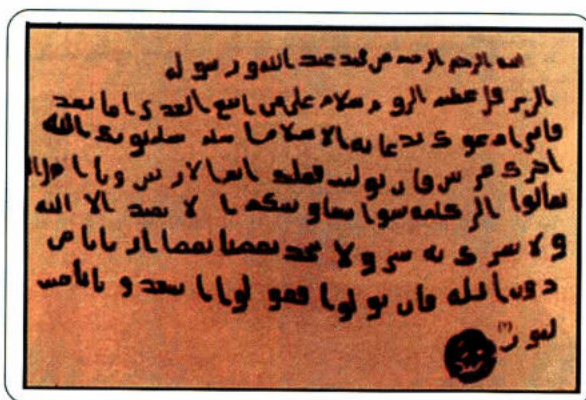 بسم الله الرحمن الرحيم من محمد عبد الله ورسوله
الى هرقل عظيم الروم سلام على من اتبع الهدى اما بعد
فانى ادعوك بدعاية الاسلام اسلم تسلم يوتك الله
اجرك مرتين فان توليت فعليك اثم الاريسين ويا اهل
تعالوا الى كلمة سوا بيننا وبينكم ان لا نعبد الا الله
ولا نشرك به شيا ولا يتخذ بعضنا بعضا اربابا من
دون الله فان تولوا فقولوا اشهدوا بانا مس
لمون (٢)